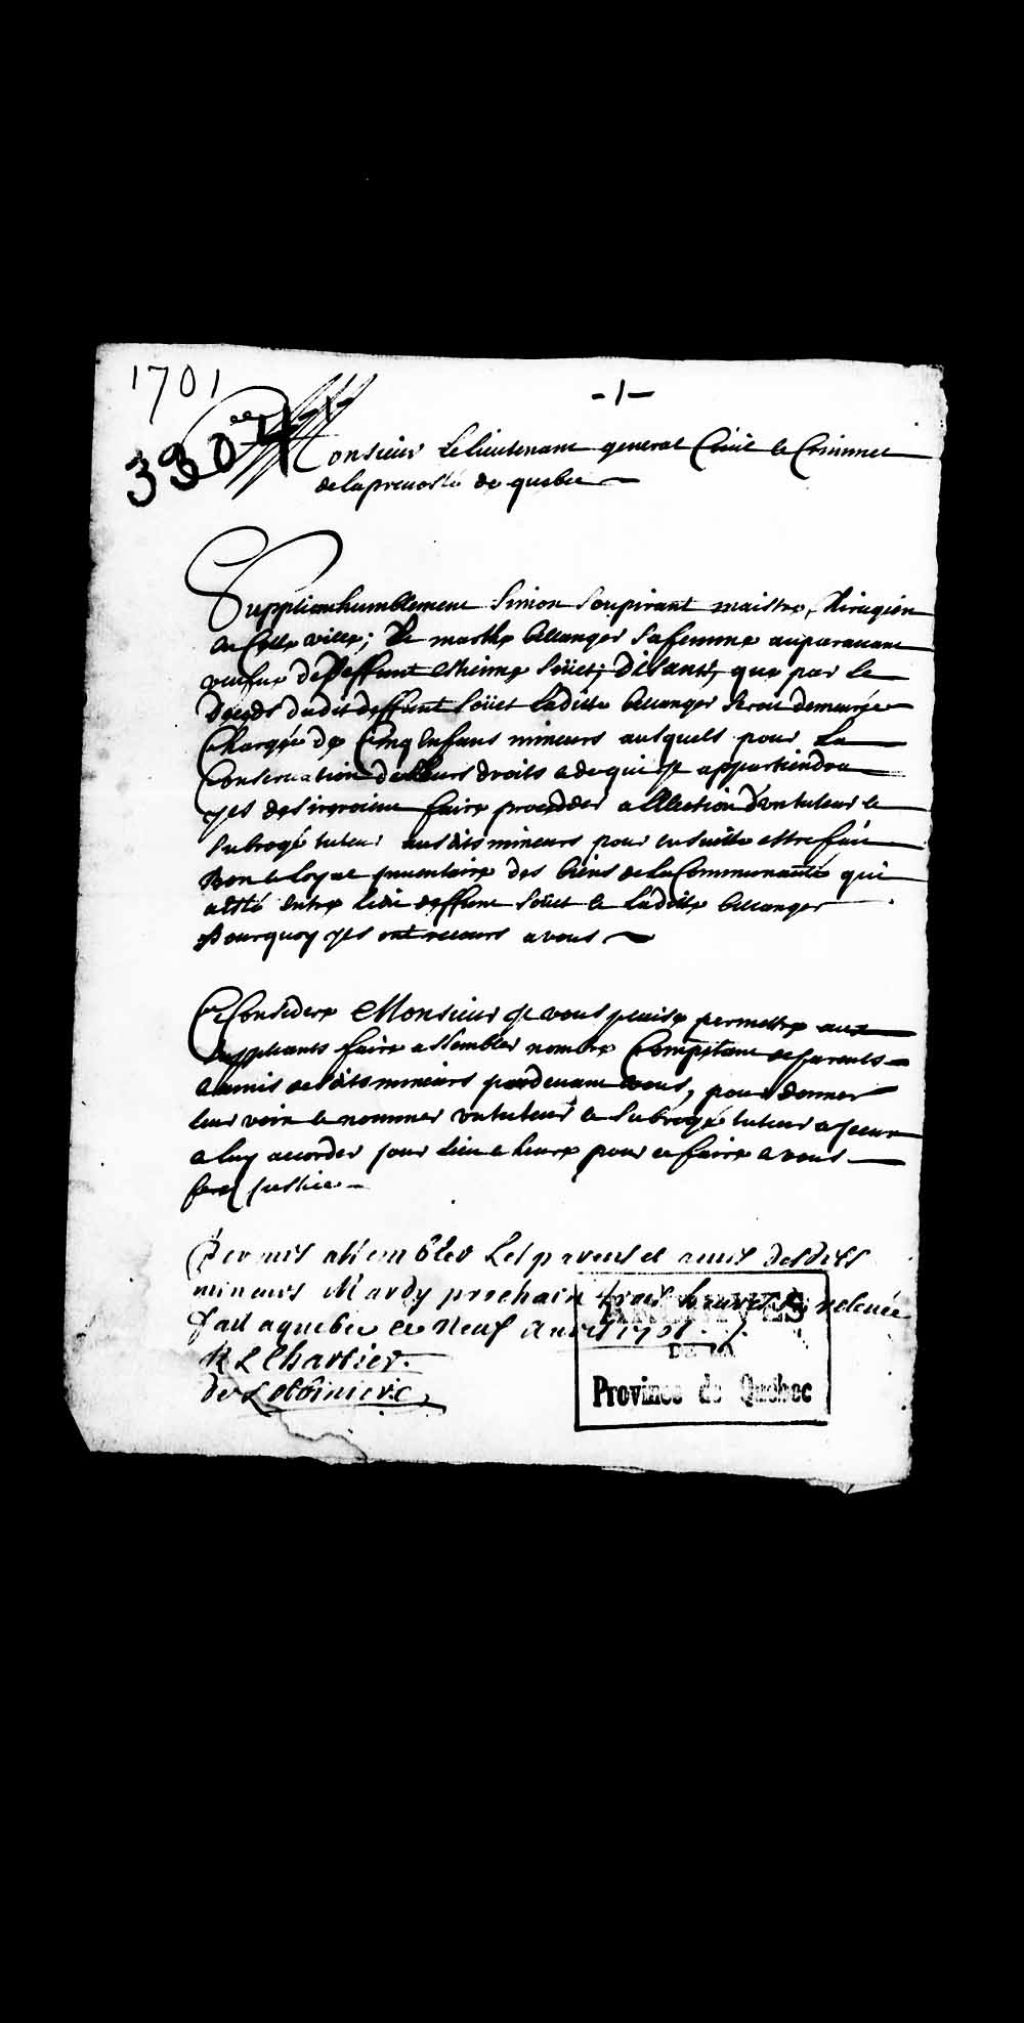 1701
-1-
3307
Monsieur Le lieutenant general Civil et Criminel
de la prevosté de quebec
Supplient humblement Simon Soupirant maistre Chirugien
en Cette ville; Et marthe bellanger Sa femme auparavant
veufve de Deffunt Estienne Soüet, Disants, que par le
Déceds dudit deffunt Soüet Laditte bellanger Seroit demeurée
Chargée de Cinq Enfans mineurs ausquels pour La
Conservation de Leurs droits a de qui Il appartiendra
Ils desireroient faire proceder a L'Election d'un tuteur et
Subrogé tuteur ausdits mineurs pour ensuitte estre fait
Bon et loyal Inventaire des biens de la Communauté qui
a esté entre ledit deffunt Soüet et Laditte bellanger
Pourquoy Ils ont recours a vous
Ce Consideré Monsieur Il vous plaise permettre aux
Suppliants faire assembler nombre Compétant de parents
et amis desdits mineurs pardevant vous, pour donner
leur voix et nommer un tuteur et Subrogé tuteur a Iceux
a luy accorder jour lieu et heure pour ce faire a vous
ferez justice
Permis assembler Les parens et amis desdits
mineurs Mardy prochain trois heures de relevée
fait a quebec ce Neuf Avril 1701
R L Chartier
de Lotbiniere
ARCHIVES
DE LA
Province de Québec